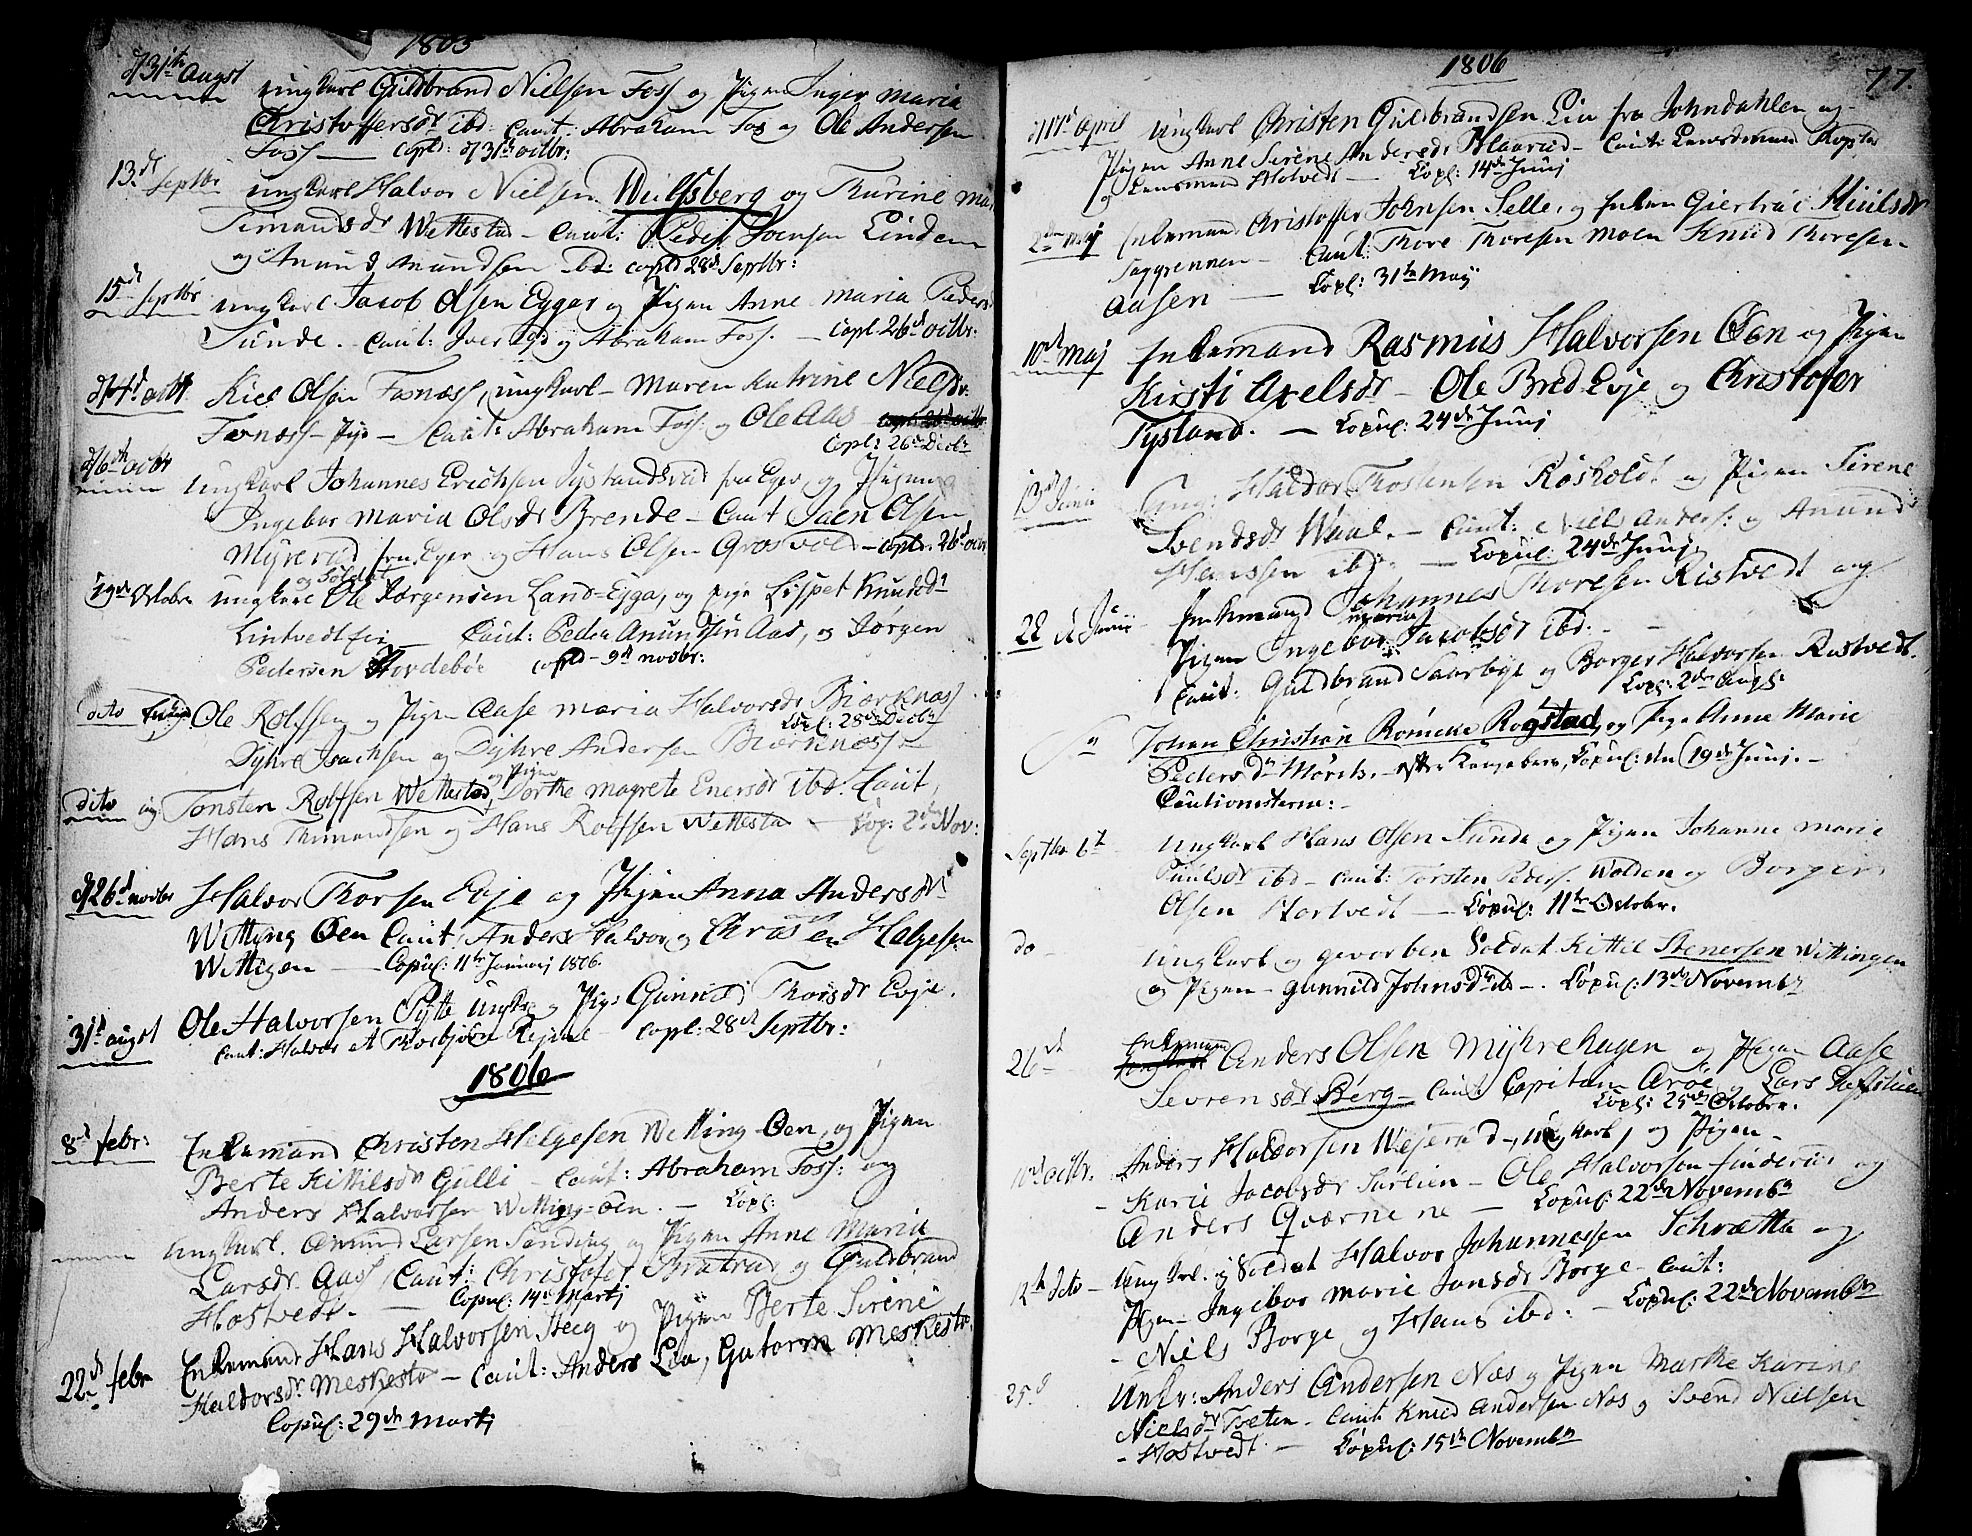 1805
d 31te Augst ungkarl Guldbrand Nielsen Foss og Pigen Inger Maria
Christoffersdr ibd: Caut: Abraham Fos og Ole Andersen
Foss — Copl: d 31te octbr:
13. d Septbr ungkarl Halvor Nielsen og Thurine Mar
Simensdr Wettestad — Caut: Peder Joensen Linden
og Anund Anundsen ibd: Copld 28de Septbr:
15d Septbr ungkarl Jacob Olsen Eggar og Pigen Anne Maria Peders
Sunde. — Caut: Iver og Abraham Foss. — Copl. 26d octbr:
d 4d octbr Kiel Olsen Fornæss, ungkarl — Maren Katrine Nielsdr:
Fornæss — Pige — Caut: Abraham Foss: og Ole Aas
Copl: 26de Decbr
d 6te octbr ungkarl Johannes Erichsen fra Eger, og Pigen
Ingebor Maria Olsdr Brende — Caut Joen Olsen
Myrerud fra Eger og Hans Olsen Grosvold — Copld: 26d octbr
og Soldat
19de Octobr ungkarl Ole Jørgensen Land-Egga, og pige Lispet Knudsdr
Lintvedtei — Caut: Peder Anundsen Aas, og Jørgen
Pedersen Hovdebøe Copld — 9d novbr:
dito Ole Rolfsen og Pigen Aase Maria Halvorsdr Bierknæss
Copl: 28de Decbr
Dyhre Isachsen og Dyhre Andersen Bierknæss
dito og Tonsten Rolfsen Wettestad, og Pigen Dorthe Magrete Enersdr ibd: Caut,
Hans Thimandsen og Hans Rolfsen Wettesta — Cop: 2den Nov:
d 26d novbr Halvor Thorsen Evje og Pigen Anna Andersdr
Witting Øen Caut, Anders Halvor og Christen Helgesen
Wittigen — Copul: 11te Januarj 1806.
31te augst Ole Halvorsen Pytte ungk: og Pige Gunnild Thorsdr Evje.
Caut: Halvor et Thorbjørn — Copl: 28d Septbr:
1806
8d febr: Enkemand Christen Helgesen Wetting-Øen, og Pigen
Berte Kittilsdr Gulli — Caut: Abraham Foss: og
Anders Halvorsen Wetting-Øen. — Copl:
Ungkarl. Amund Larsen Sanding og Pigen Anne Maria
Larsdr Aass, Caut: Christofer Bratrud og Guldbrand
Hostvedt. — Copul: 14de Martj
22d febr Enkemand Hans Halvorsen Steeg og Pigen Berte Sirene
Haldorsdr Meskestø — Caut: Anders Lia, Gutorm Meskestø.
Copul: 29de Martj
1806
77.
d 17d April ungkarl Christen Guldbrandsen Lia fra Johndahlen og
Pigen Anne Sirene Andersdr Blaarud — Caut: Lensdmand Ropstad
og Lensmand Hostvedt — Copl: 14de Junj
2den Maj Enkemand Christoffer Johnsen Selle, og Enken Giertrui
Saggrennen — Caut: Thore Thoresen Moen Knud Thoresen
Aasen — Copl: 31te Maij
10d Maj Enkemand Rasmus Halvorsen Øen og Pigen
Kirsti Axelsdr — Ole Bred-Evje og Christofer
Tysland. — Copul: 24de Junj
13d Junii Ung: Haldor Thostensen Rosholdt og Pigen Sirene
Svendsdr Waal. — Caut: Niels Anders: og Anund
Hanssen ibd: — Copul: 24de Junj
22 d Junii Enkemand Johannes Thoresen Ristvedt og
Pigen Ingebor Maria Jacobsdr ibd: —
Caut: Guldbrand Saarbye og Borger Halvorsen Ristvedt.
Copl: 2den Augst:
Johan Christian Rømcke Rogstad, og Pige Anne Marie
Pedersdr Mørch. — efter Kongebrev, Copul: den 19de Junj. —
Cautionisterne: —
Septbr 6te ungkarl Hans Olsen Sunde og Pigen Johanne Marie
Paulsdr ibd — Caut: Torsten Peders. Wolden og Borger
Olsen Hostvedt — Copul: 11te Octobr.
do — ungkarl og gevorben Soldat Kittil Stenersen Wittingen
og Pigen — Gunnild Johnsdr ibd —. Copul: 13de Novembr
26de Enkemand Anders Olsen Myhrehagen og Pigen Aase
Sevrensdr Berg — Caut: Capitain Arøe og Lars
Copl: 25de Octobr.
10d octbr. Anders Haldorsen Wejerud, ungkarl, og Pigen —
Karie Jacobsdr Sørlien — Ole Halvorsen Finderud og
Anders Qværnene — Copul: 22de Novembr
12te dito — Ungkrl. og Soldat Halvor Johannessen Schrætta og
Pigen Ingebor Marie Jonsdr Borge — Caut:
— Niels Borge og Hans ibd: — Copul: 22de Novembr
25d Unkr: Anders Andersen Næs og Pigen Marthe Karine
Nielsdr Tveten — Caut Knud Andersen Næs og Svend Nielsen
— Hostvedt. — Copul: 15de Novembr